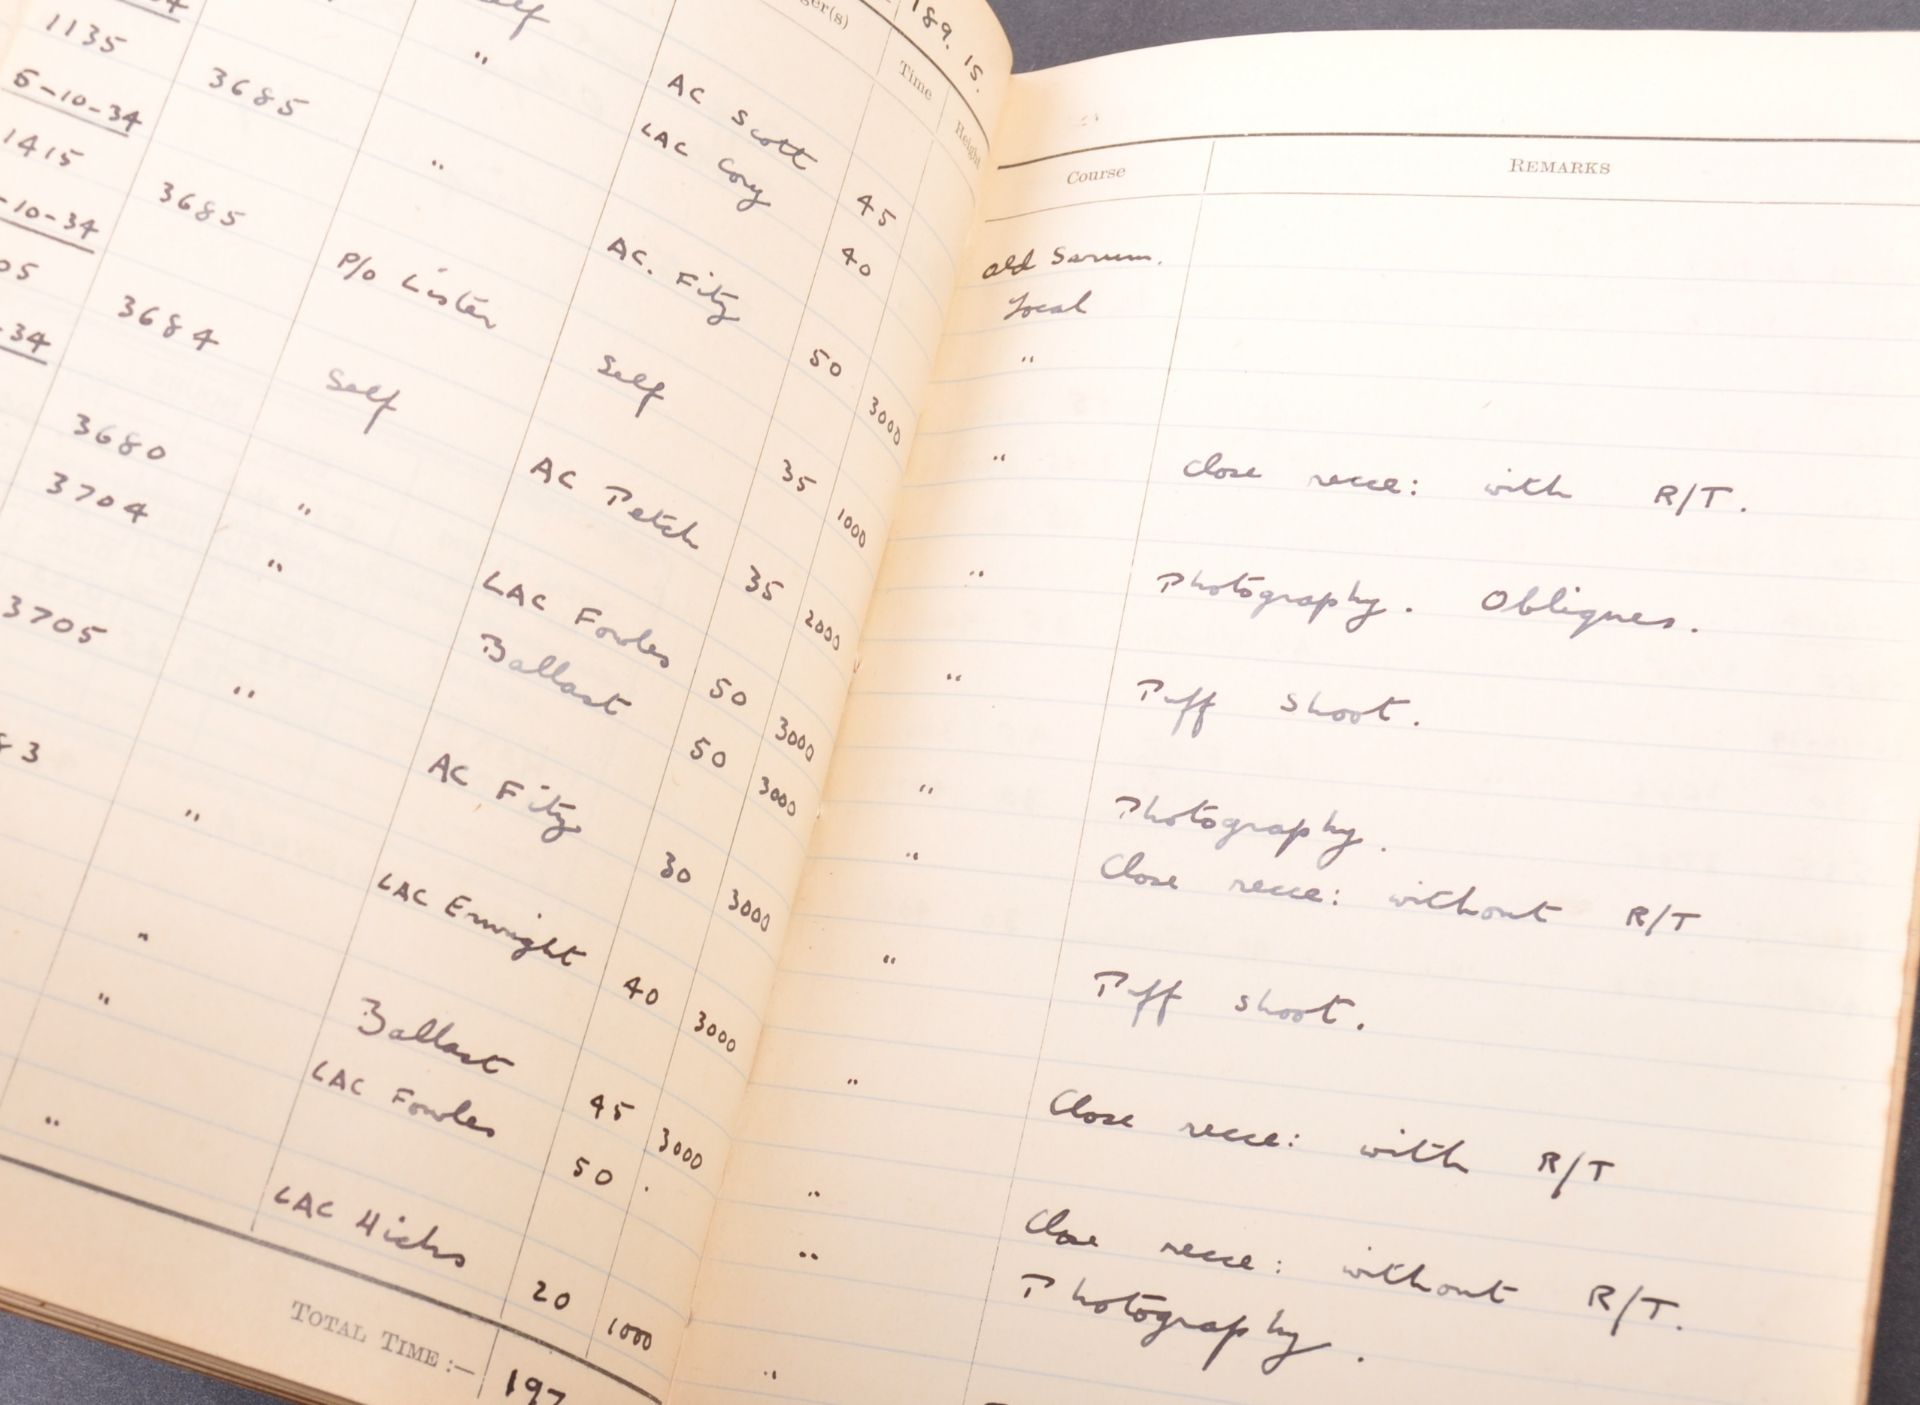 189.15.
Time Height
1135 3685 " AC Scott 45
LAC Cory 40
5-10-34
1415 3685 " AC. Fitz 50 3000
-10-34
05 3684 P/O Lister Self 35 1000
-34
3680 Self AC Petch 35 2000
3704 " LAC Fowles 50 3000
" Ballast 50 3000
3705 " AC Fitz 30 3000
83 " LAC Enwright 40 3000
" Ballast 45 3000
" LAC Fowles 50 .
" LAC Hicks 20 1000
TOTAL TIME :— 197
Course REMARKS
Old Sarum.
Local
"
" Close recce: with R/T.
" Photography. Obliques.
" Puff shoot.
" Photography.
" Close recce: without R/T
" Puff shoot.
" Close recce: with R/T
" Close recce: without R/T.
" Photography.
"